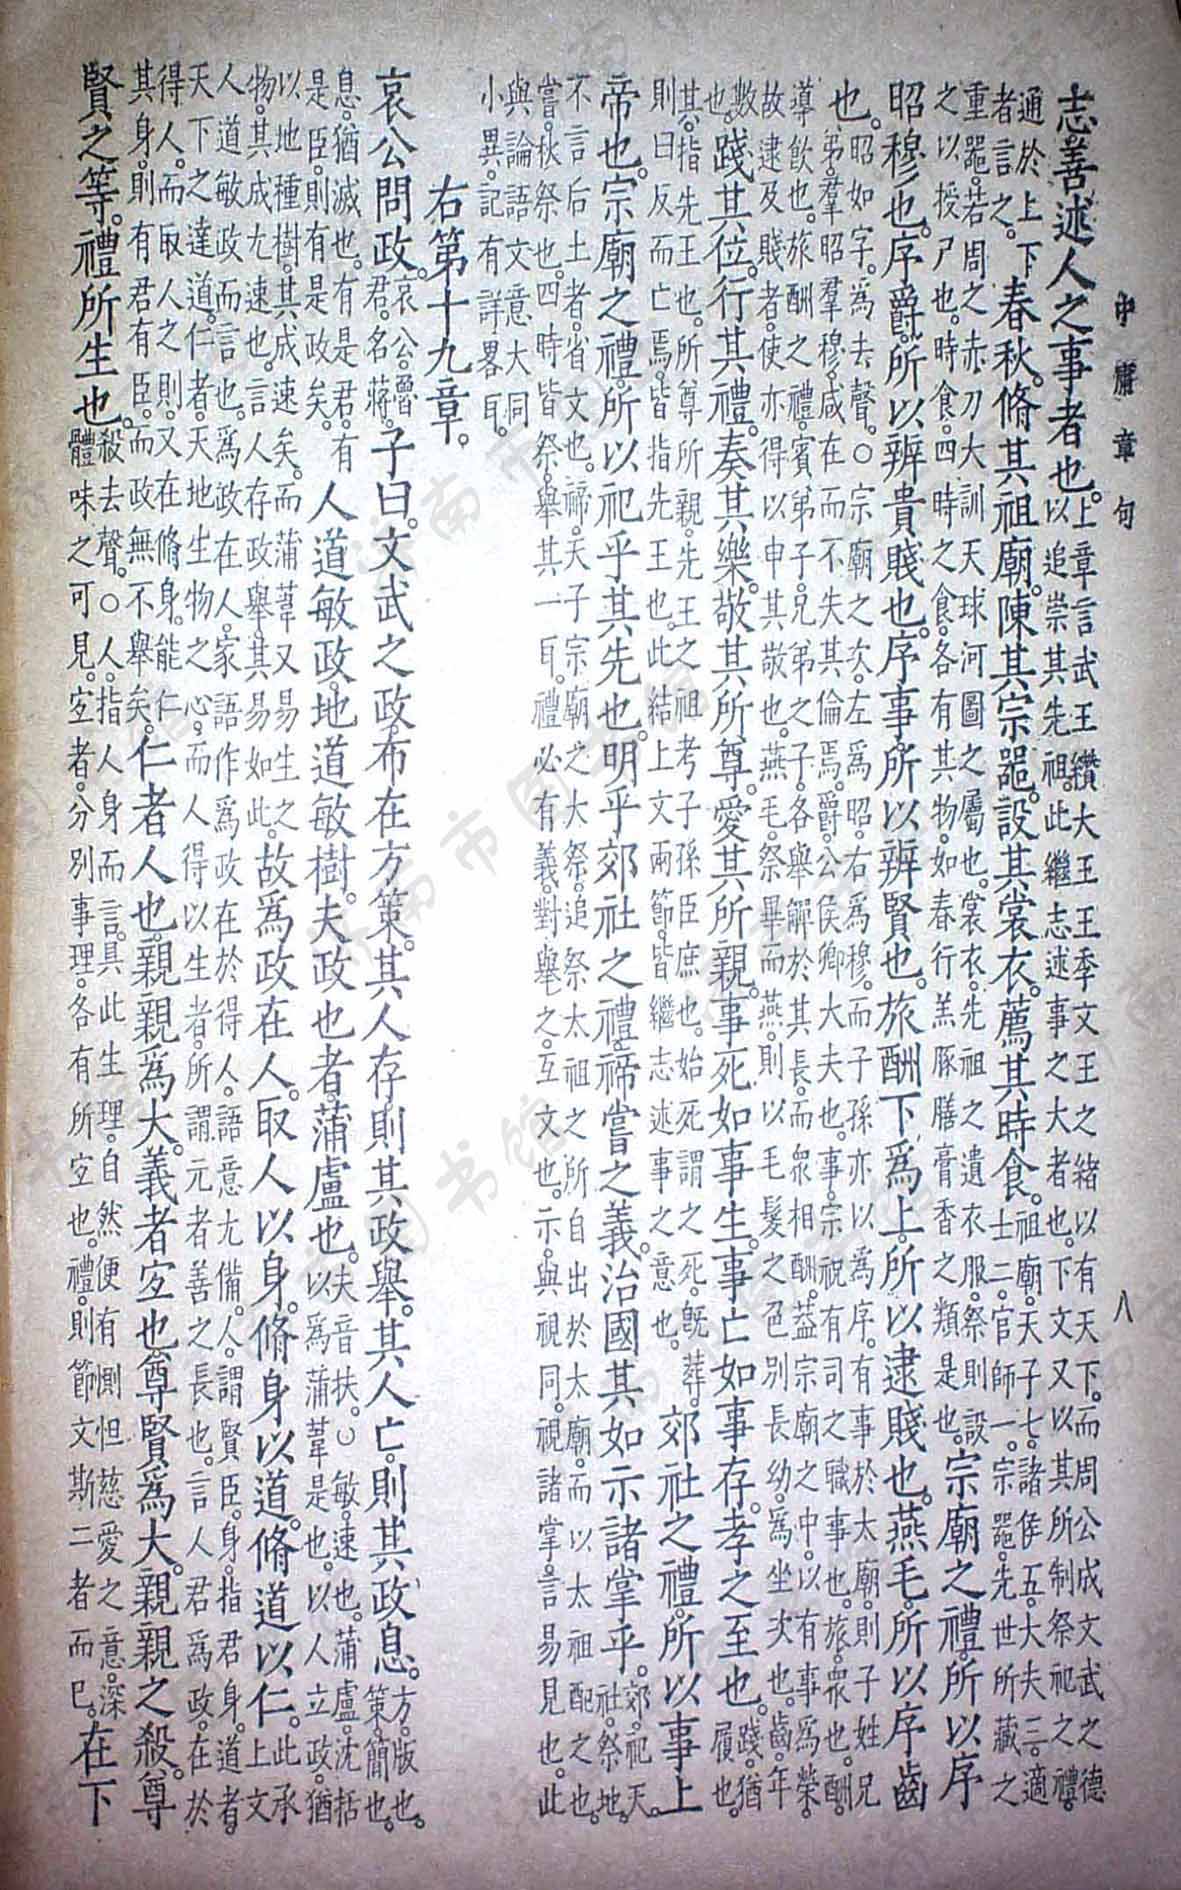 中庸章句　八
志善述人之事者也。
上章言武王纘大王王季文王之緒以有天下。而周公成文武之德
以追崇其先祖。此繼志述事之大者也。下文又以其所制祭祀之禮。
通於上下
者言之。
春秋。脩其祖廟。陳其宗器。設其裳衣。薦其時食。
祖廟。天子七。諸侯五。大夫三。適
士二。官師一。宗器。先世所藏之
重器。若周之赤刀大訓天球河圖之屬也。裳衣。先祖之遺衣服。祭則設
之以授尸也。時食。四時之食。各有其物。如春行羔豚膳膏香之類是也。
宗廟之禮。所以序
昭穆也。序爵。所以辨貴賤也。序事。所以辨賢也。旅酬下爲上。所以逮賤也。燕毛。所以序齒
也。
昭如字。爲去聲。○宗廟之次。左爲昭。右爲穆。而子孫亦以爲序。有事於太廟。則子姓兄
弟。羣昭羣穆。咸在而不失其倫焉。爵。公侯卿大夫也。事。宗祝有司之職事也。旅。衆也。酬。
導飲也。旅酬之禮。賓弟子。兄弟之子。各舉觶於其長。而衆相酬。蓋宗廟之中。以有事爲榮。
故逮及賤者。使亦得以申其敬也。燕毛。祭畢而燕。則以毛髮之色別長幼。爲坐次也。齒。年
數
也。
踐其位。行其禮。奏其樂。敬其所尊。愛其所親。事死如事生。事亡如事存。孝之至也。
踐。猶
履也。
其。指先王也。所尊所親。先王之祖考子孫臣庶也。始死謂之死。既葬。
則曰反而亡焉。皆指先王也。此結上文兩節。皆繼志述事之意也。
郊社之禮。所以事上
帝也。宗廟之禮。所以祀乎其先也。明乎郊社之禮。禘嘗之義。治國其如示諸掌乎。
郊。祀天。
社。祭地。
不言后土者。省文也。禘。天子宗廟之大祭。追祭太祖之所自出於太廟。而以太祖配之也。
嘗。秋祭也。四時皆祭。舉其一耳。禮必有義。對舉之。互文也。示。與視同。視諸掌。言易見也。此
與論語文意大同
小異。記有詳畧耳。
右第十九章。
哀公問政。
哀公。魯
君。名蔣。
子曰。文武之政。布在方策。其人存。則其政舉。其人亡。則其政息。
方。版也。
策。簡也。
息。猶滅也。有是君。有
是臣。則有是政矣。
人道敏政。地道敏樹。夫政也者。蒲盧也。
夫音扶。○敏。速也。蒲盧。沈括
以爲蒲葦是也。以人立政。猶
以地種樹。其成速矣。而蒲葦又易生之
物。其成尤速也。言人存政舉。其易如此。
故爲政在人。取人以身。脩身以道。脩道以仁。
此承
上文
人道敏政而言也。爲政在人。家語作爲政在於得人。語意尤備。人。謂賢臣。身。指君身。道者。
天下之達道。仁者。天地生物之心。而人得以生者。所謂元者善之長也。言人君爲政。在於
得人。而取人之則。又在脩身。能仁
其身。則有君有臣。而政無不舉矣。
仁者人也。親親爲大。義者宜也。尊賢爲大。親親之殺。尊
賢之等。禮所生也。
殺去聲。○人。指人身而言。具此生理。自然便有惻怛慈愛之意。深
體味之可見。宜者。分別事理。各有所宜也。禮。則節文斯二者而已。
在下